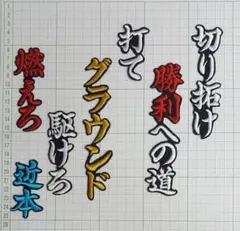 切り拓け
勝利への道
打て
グラウンド
駆けろ
燃えろ
近本